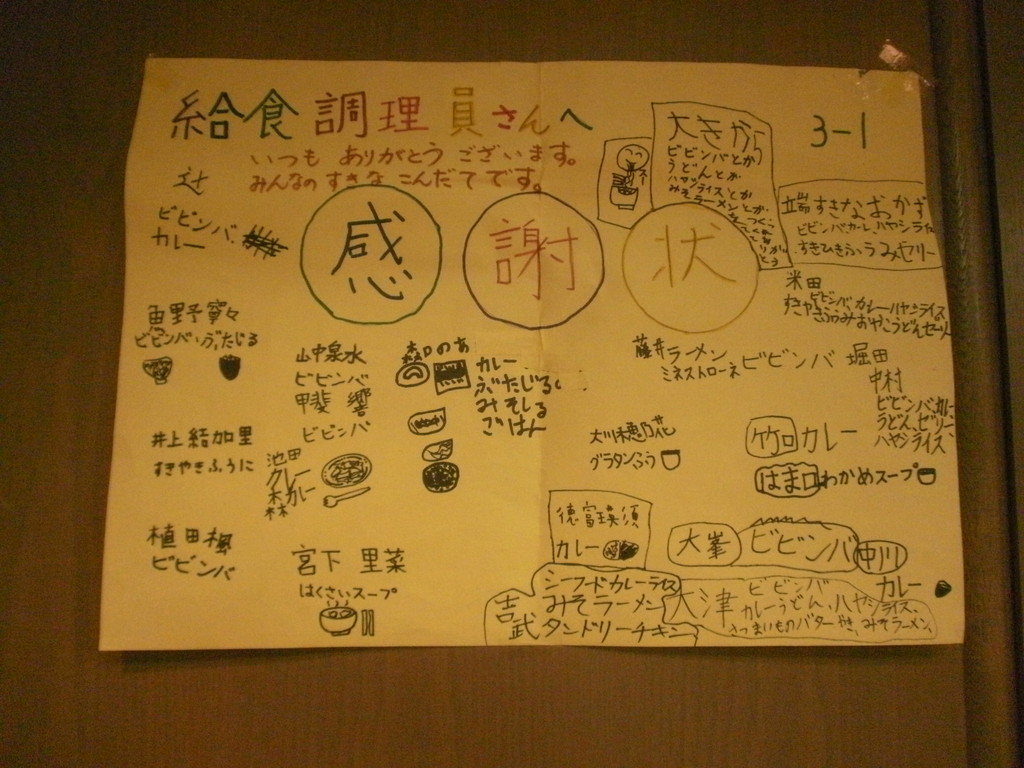 給食調理員さんへ
3-1
いつも ありがとう ございます。
みんなの すきな こんだてです。
感謝状
大きから
ビビンバとか
うどんとか
ハヤシライスとか
みそラーメンとか
辻
ビビンバ、
カレー
端 すきなおかず
米田
魚野寧々
ビビンバ・ぶたじる
山中泉水
ビビンバ
甲斐 響
ビビンバ
森口のあ
カレー
ぶたじる
みそしる
ごはん
藤井 ラーメン
ミネストローネ
ビビンバ 堀田
中村
ビビンバ
うどん、ゼリー
ハヤシライス、
井上結加里
すきやきふうに
池田
カレー
森 カレー
グラタンふう
竹口 カレー
はま口 わかめスープ
植田楓
ビビンバ
宮下 里菜
はくさいスープ
徳富璃須
カレー
大峯 ビビンバ
中川
カレー
吉武
シーフードカレーライス
みそラーメン
タンドリーチキン
大津
ビビンバ
カレーうどん、ハヤシライス、
さつまいものバターやき、みそラーメン、